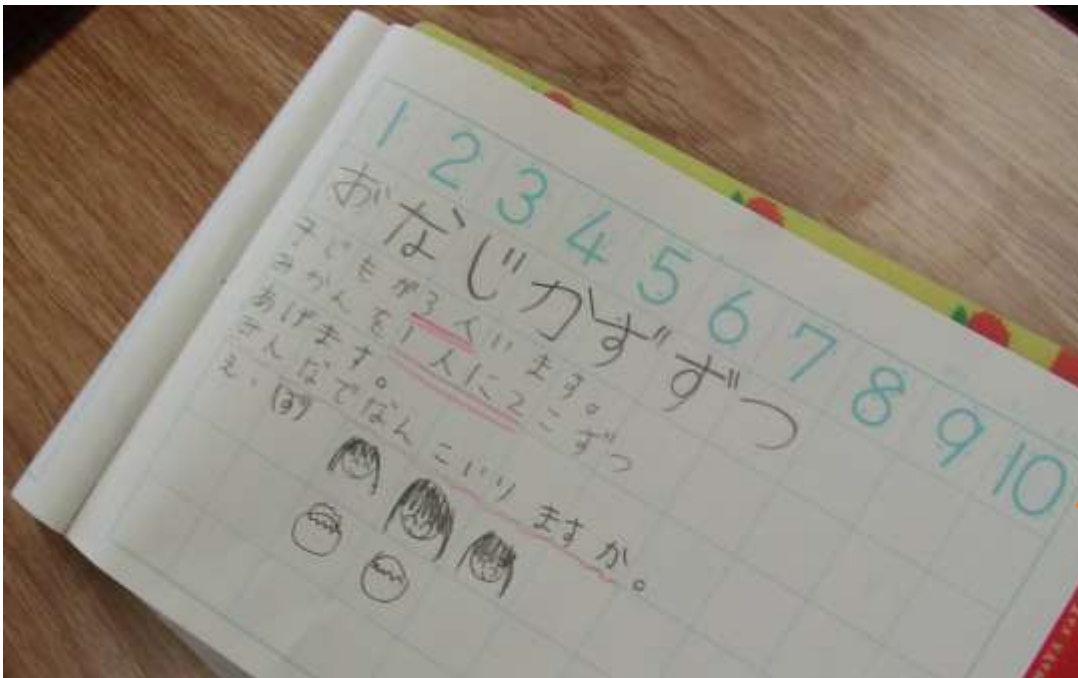 1 2 3 4 5 6 7 8 9 10
おなじかずずつ
子どもが3人います。
みかんを1人に2こずつ
あげます。
みんなでなんこいりますか。
え・
(ず)